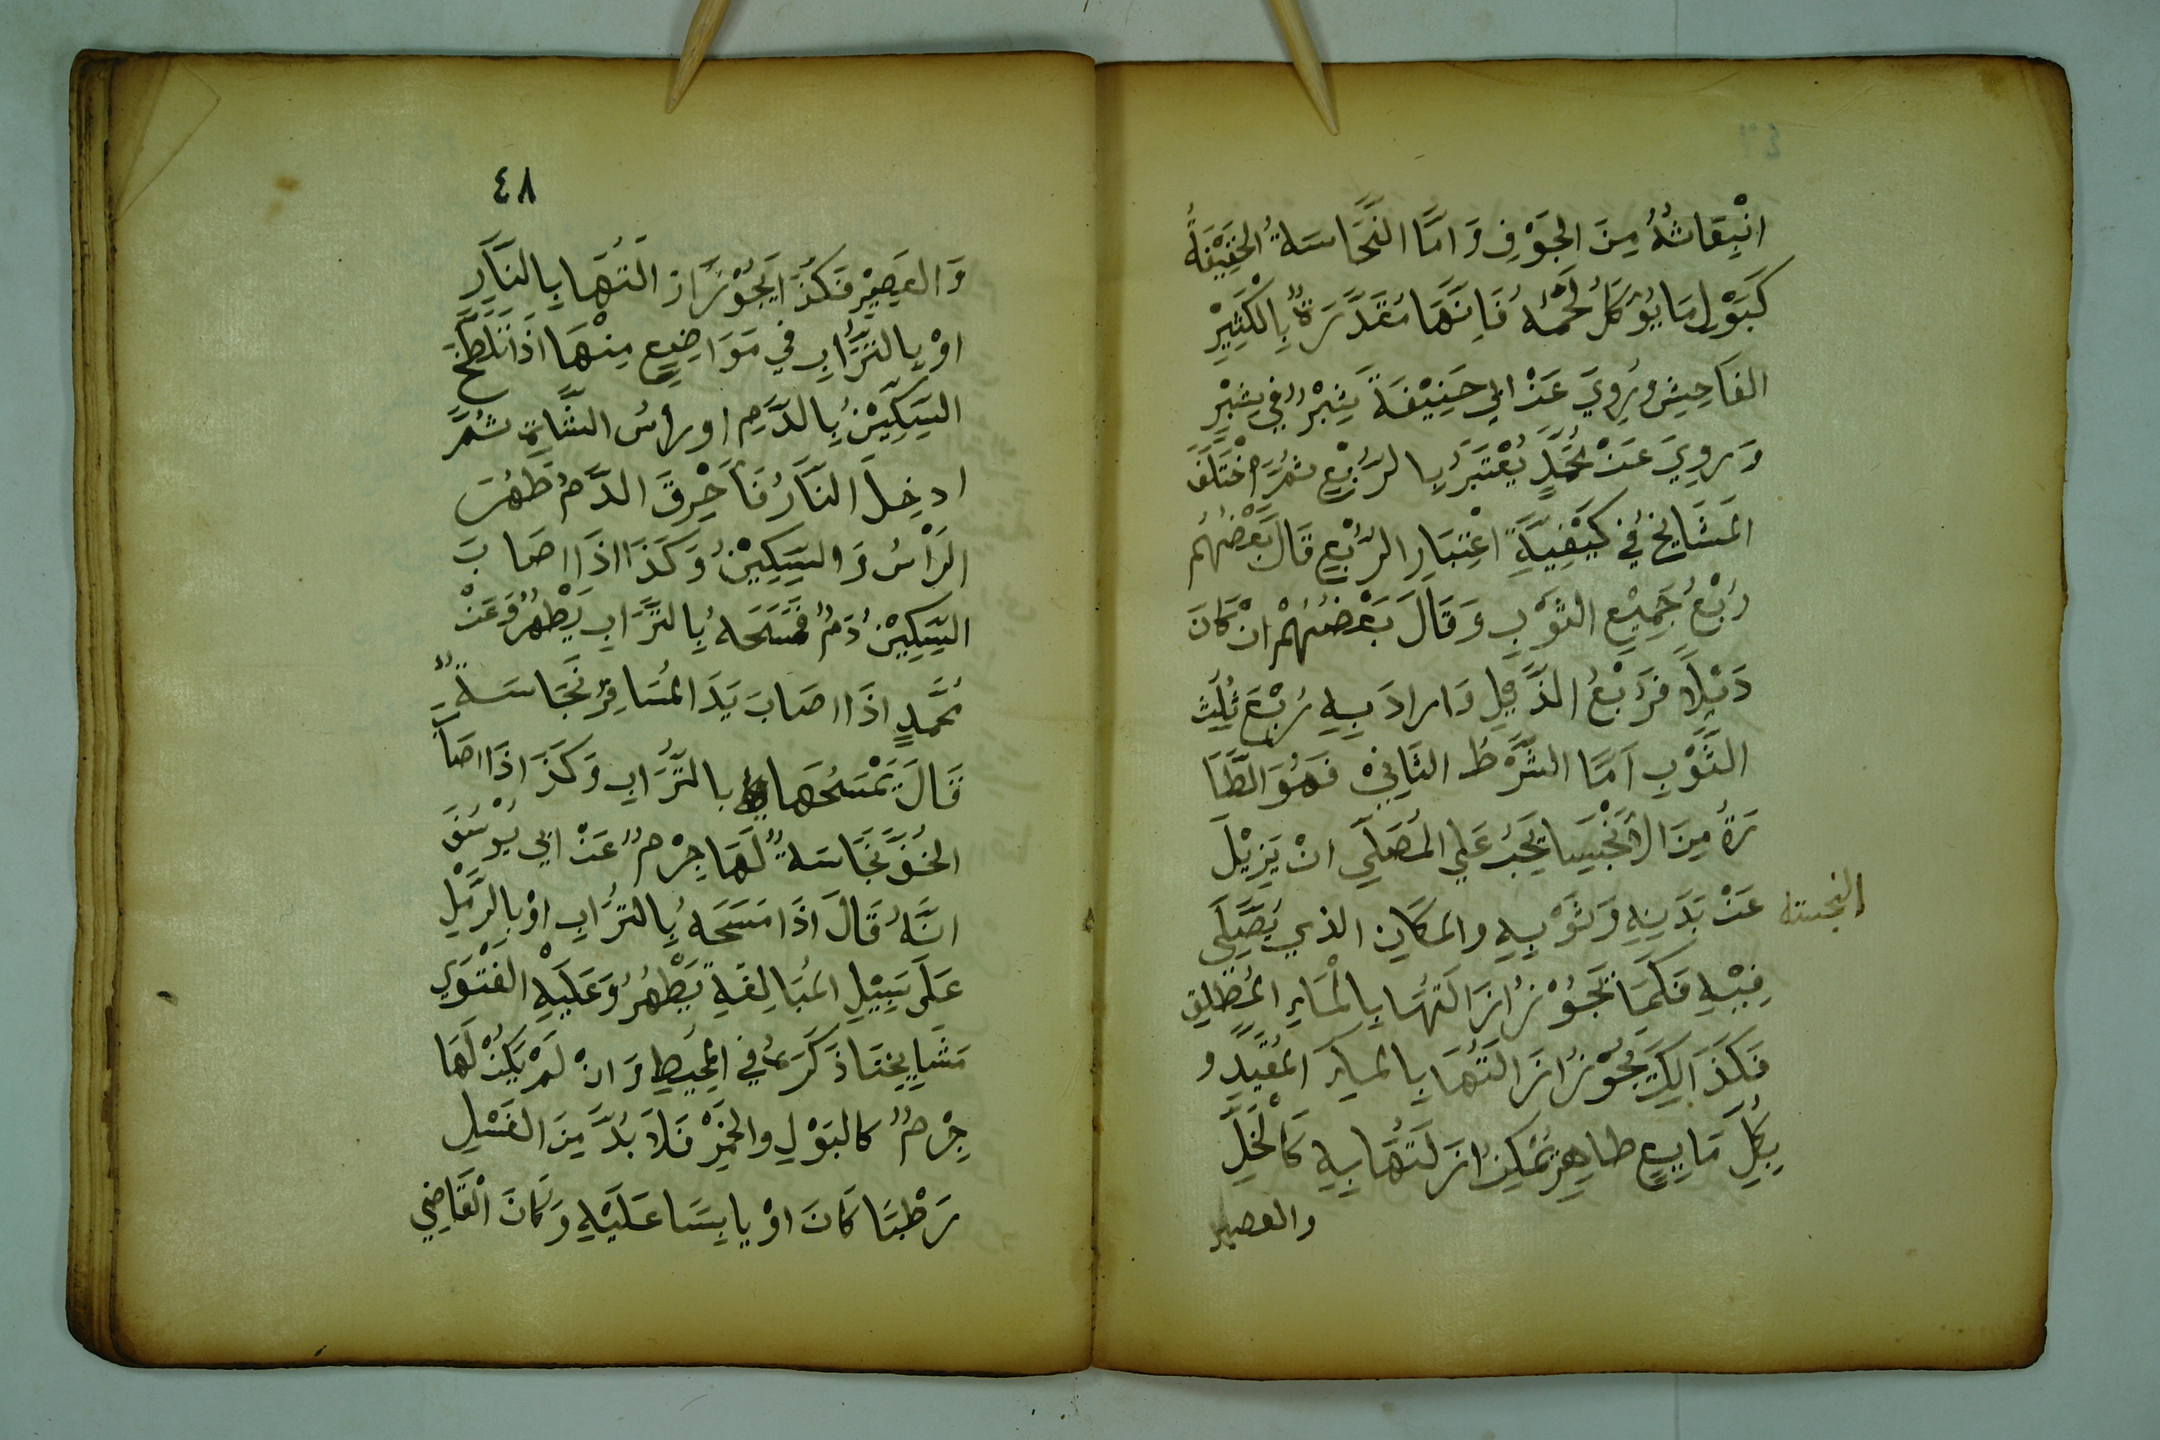 انْبِعَاثُهُ مِنَ الجَوْفِ وَامَّا النَّجَاسَةُ الخَفِيْفَةُ
كَبَوْلِ مَا يُوْكَلُ لَحْمُهُ فَاِنَّهَا مُقَدَّرَةٌ بِالْكَثِيْرِ
الفَاحِشِ وَرُوِيَ عَنْ ابي حَنِيْفَةَ شِبْرٌ فِي شِبْرٍ
وَرِويَ عَنْ مُحَمَّدٍ يُعْتَبَرُ بِالرُّبْعِ ثُمَّ اخْتَلَفَ
المَشَايِخُ فِي كَيْفِيَّةِ اعْتِبَارِ الرُّبْعِ قَالَ بَعْضُهُم
رُبْعُ جَمِيْعِ الثَوْبِ وَقَالَ بَعْضُهُمْ انْ كَانَ
ذَيْلًا فَرُبْعُ الذَّيْلِ وَارادَ بِهِ رُبْعَ ثُلُثِ
الثَّوْبِ اَمَّا الشَّرْطُ الثَانِيْ فَهُوَ الطَّهَا
رَةُ مِنَ الأَنْجَسِ يَجِبُ عَلي المُصَلِّي انْ يَزِيْلَ
النجسته
عَنْ بَدَنِهِ وَثَوْبِهِ والمَكَانِ الذي يُصَلِّى
فِيْهِ فَكَمَا تَجُوْزُ ازَالَتُهَا بِالْمَاءِ المُطْلَقِ
فَكَذَالِكَ يَجُوْزُ ازَالَتُهَا بِالمَاءِ المُقَيَّدِ و
بِكُلِّ مَايِعٍ طاهِرٍ يُمْكِنُ ازَلَتُهَا بِهِ كَالْخَلِّ
والعصير
٤٨
وَالعَصِيْرِ فَكَذَا يَجُوْزُ ازَالَتُهَا بِالنَّارِ
اوْ بِالتُّرَابِ في مَوَاضِيعٍ مِنْهَا اذَا تَلَطَّخَ
السِكِّيْنُ بِالدَّمِ او رأسُ الشَّاةِ ثُمَّ
ادخِلَ النَّارُ فَاَحْرِقَ الدَّمُ طَهُرَ
الرَأسُ وَالسِكِيْنُ وَكَذَا اذَا اصَابَ
السِّكِيْنَ دَمٌ فَمَسَحَهُ بِالتُّرَابِ يَطْهُرُ وَعَنْ
مُحَمَّدٍ اذَا اصَابَ يَدَ المُسَافِرِ نَجَاسَةٌ
قَالَ يَمْسَحُهَا بالتُّرَابِ وَكَذَا اذَا اصَابَ
الخُفَّ نَجَاسَةٌ لَهَا جِرْمٌ عَنْ ابي يُوْسُفَ
انَّهُ قَالَ اذَا مَسَحَهُ بِالتُرَابِ اوْ بالرَّمْلِ
عَلَى سَبِيْلِ المُبَالِغَةِ يَطْهُرُ وَعَلَيْهِ الفَتْوَي
مَشَايِخِنَا ذَكَرَهُ فِي المُحِيْطِ وَانْ لَمْ يَكُنْ لَهَا
جِرْمٌ كالبَوْلِ والخَمْرِ فَلَا بُدَّ مِنَ الغَسْلِ
رَطْبًا كَانَ اوْ يابِسًا عَلَيْهِ وَكَانَ الْقَاضِي